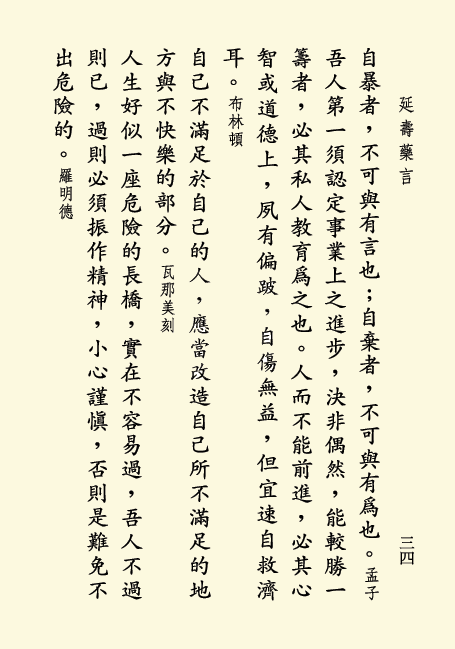 延壽藥言
三四
自暴者，不可與有言也；自棄者，不可與有爲也。孟子
吾人第一須認定事業上之進步，決非偶然，能較勝一
籌者，必其私人教育爲之也。人而不能前進，必其心
智或道德上，夙有偏跛，自傷無益，但宜速自救濟
耳。布林頓
自己不滿足於自己的人，應當改造自己所不滿足的地
方與不快樂的部分。瓦那美刻
人生好似一座危險的長橋，實在不容易過，吾人不過
則已，過則必須振作精神，小心謹愼，否則是難免不
出危險的。羅明德